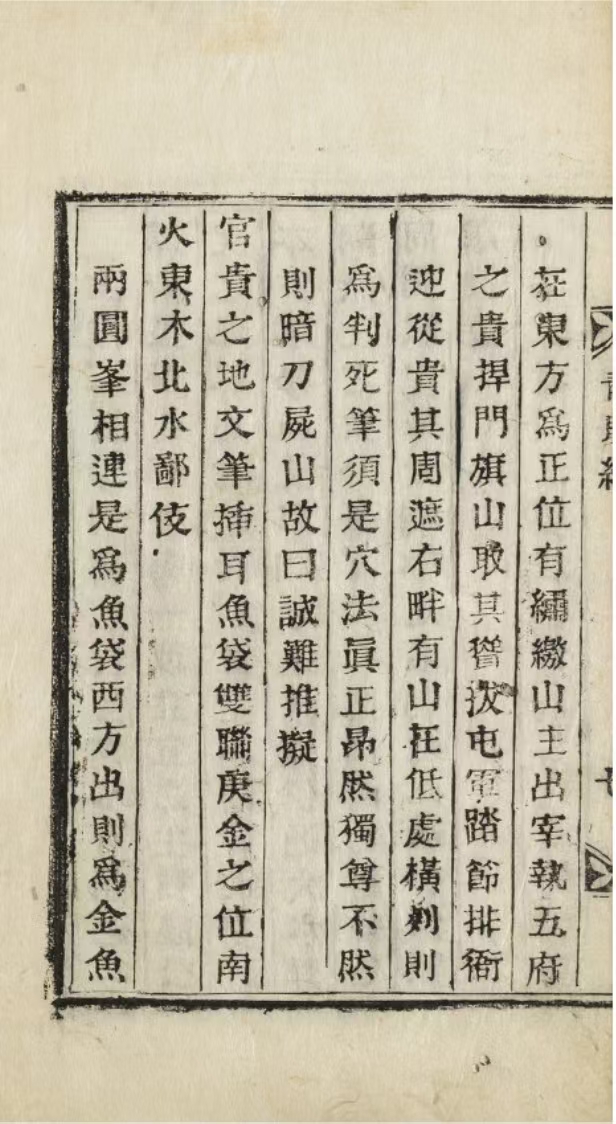 在東方爲正位有繡繳山主出宰執五府
之貴捍門旗山取其聳拔屯軍踏節排衙
迎從貴其周遮右畔有山在低處橫則
爲判死筆須是穴法眞正昻然獨尊不然
則暗刀屍山故曰誠難推擬
官貴之地文筆揷耳魚袋雙聯庚金之位南
火東木北水鄙伎
兩圓峯相連是爲魚袋西方出則爲金魚